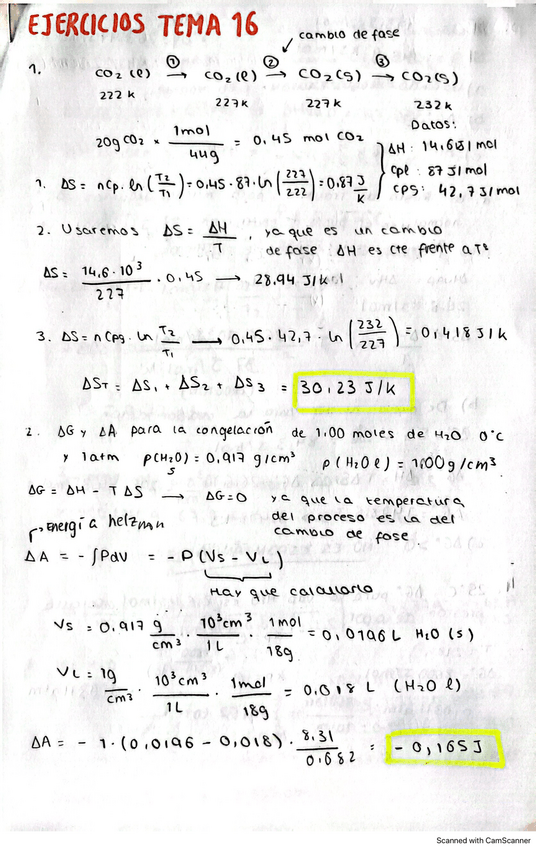 EJERCICIOS TEMA 16
cambio de fase
1. CO2 (l) →① CO2 (l) →② CO2 (s) →③ CO2(s)
222 k 227k 227k 232k
Datos:
20g CO2 × 1mol / 44g = 0,45 mol CO2
ΔH: 14,6kJ/mol
Cpl: 87 J/mol
Cps: 42,7 J/mol
1. ΔS = nCp. ln (T2/T1) = 0,45 · 87 · ln (227/222) = 0,87 J/K
2. Usaremos ΔS = ΔH/T, ya que es un cambio
de fase ΔH es cte frente a Tª
ΔS = 14,6 · 10³ / 227 · 0,45 → 28,94 J/k
3. ΔS = nCps · ln T2/T1 → 0,45 · 42,7 · ln (232/227) = 0,418 J/k
ΔST = ΔS1 + ΔS2 + ΔS3 = 30,23 J/k
2. ΔG y ΔA para la congelación de 1,00 moles de H2O 0°C
y 1atm ρ(H2O) s = 0,917 g/cm³ ρ(H2O l) = 1,00 g/cm³
ΔG = ΔH - TΔS → ΔG=0 ya que la temperatura
del proceso es la del
cambio de fase.
Energía helzmn
ΔA = - ∫PdV = - P (Vs - VL)
Hay que calcularlo
Vs = 0,917 g/cm³ · 10³cm³/1L · 1mol/18g = 0,0196 L H2O (s)
VL = 1g/cm³ · 10³cm³/1L · 1mol/18g = 0,018 L (H2O l)
ΔA = - 1 · (0,0196 - 0,018) · 8,31/0,082 = - 0,165 J
Scanned with CamScanner